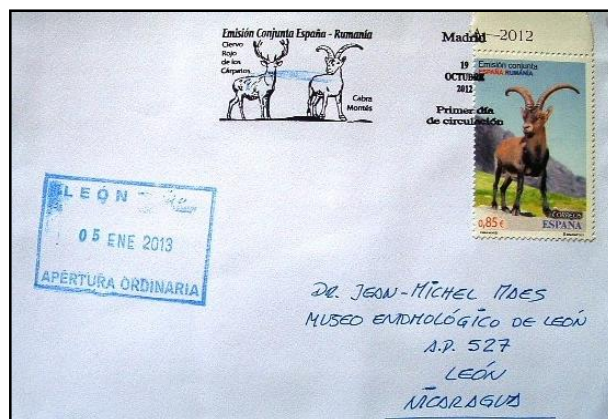 Emisión Conjunta España - Rumanía
Ciervo
Rojo
de los
Cárpatos
Cabra
Montés
Madrid
2012
19
OCTUBRE
2012
Primer día
de circulación
Emisión conjunta
ESPAÑA RUMANÍA
CORREOS
0,85€ ESPAÑA
LEÓN
05 ENE 2013
APERTURA ORDINARIA
DR. JEAN-MICHEL MAES
MUSEO ENTOMOLÓGICO DE LEÓN
A.P. 527
LEÓN
NICARAGUA